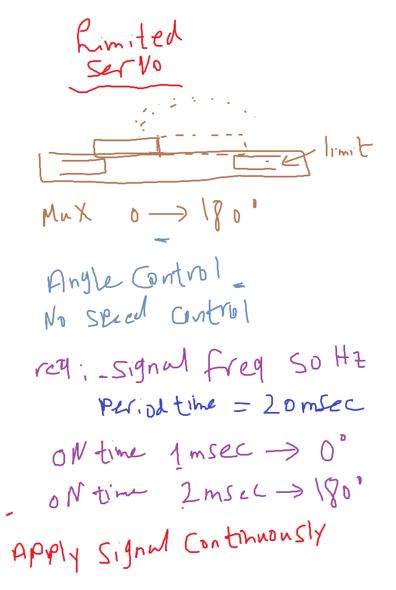 Limited
servo
limit
Max 0 → 180°
Angle Control
No speed control
req: - signal freq 50 Hz
Period time = 20msec
ON time 1msec → 0°
ON time 2msec → 180°
Apply signal continuously